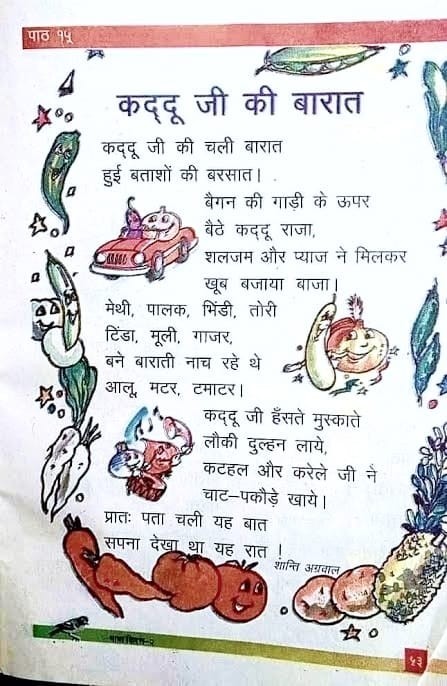 पाठ १५
कद्दू जी की बारात
कद्दू जी की चली बारात
हुई बताशों की बरसात।
बैगन की गाड़ी के ऊपर
बैठे कद्दू राजा,
शलजम और प्याज ने मिलकर
खूब बजाया बाजा।
मेथी, पालक, भिंडी, तोरी
टिंडा, मूली, गाजर,
बने बाराती नाच रहे थे
आलू, मटर, टमाटर।
कद्दू जी हँसते मुस्काते
लौकी दुल्हन लाये,
कटहल और करेले जी ने
चाट–पकौड़े खाये।
प्रातः पता चली यह बात
सपना देखा था यह रात !
शान्ति अग्रवाल
५३